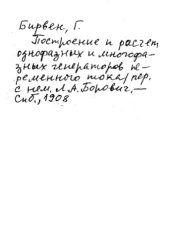 Бирвен, Г.
Построение и расчет
однофазных и многофа-
зных генераторов пе-
ременного тока/пер.
с нем. Л.А.Борович.—
Спб., 1908